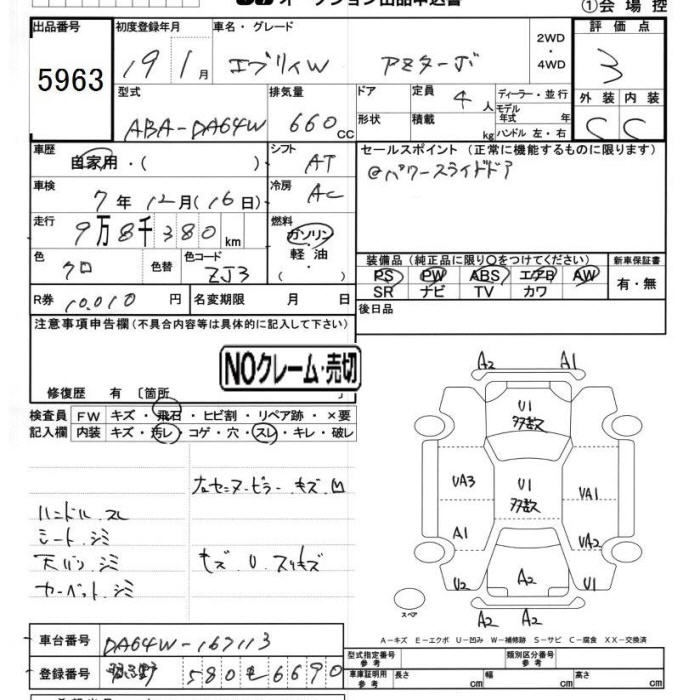 オークション出品申込書
①会場控
出品番号
5963
初度登録年月
19 1月
車名・グレード
エブリィW PZターボ
2WD
・
4WD
評価点
3
型式
ABA-DA64W
排気量
660cc
ドア
形状
定員 4人
積載 kg
ディーラー・並行
モデル年式 年
ハンドル 左・右
外装 内装
C C
車歴
自家用・( )
シフト AT
セールスポイント(正常に機能するものに限ります)
@パワースライドドア
車検
7年12月(16日)
冷房 AC
走行
9万8千380km
燃料
ガソリン
軽油
・
色
クロ
色替
色コード
ZJ3
装備品(純正品に限り○をつけてください)
PS PW ABS エアB AW
SR ナビ TV カワ
新車保証書
有・無
R券 10,010円
名変期限 月 日
後日品
注意事項申告欄(不具合内容等は具体的に記入して下さい)
NOクレーム・売切
修復歴 有 〔箇所 〕
検査員 FW キズ・飛石・ヒビ割・リペア跡・×要
記入欄 内装 キズ・汚レ・コゲ・穴・スレ・キレ・破レ
右センターピラー.キズ.凹
ハンドル.スレ
シート.シミ
天バリ.シミ
キズ.U.スリキズ
カーペット.シミ
A2 A1
U1
多キズ
UA3
U1
多キズ
UA1
A1
UA2
U2
A2
U1
A2 A2
スペア
A-キズ E-エクボ U-凹み W-補修跡 S-サビ C-腐食 XX-交換済
車台番号 DA64W-167113
登録番号 580 6690
型式指定番号
参考
類別区分番号
参考
車庫証明用
参考
長さ cm 幅 cm 高さ cm